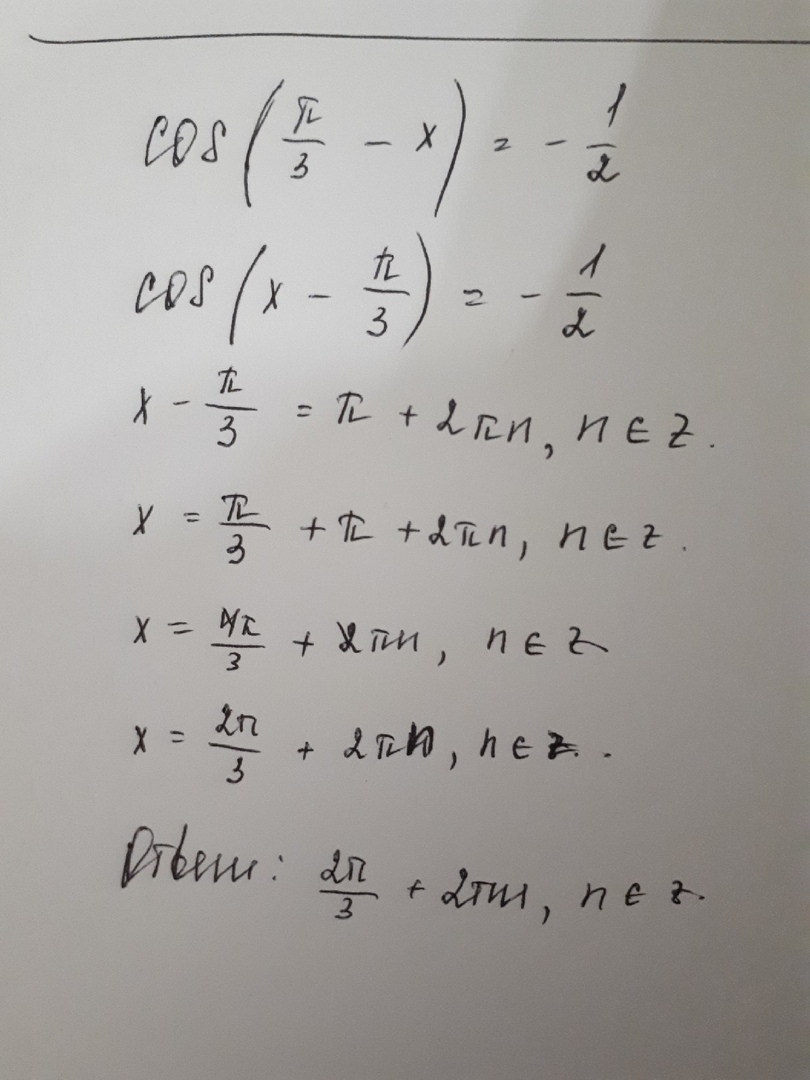 cos(π/3 - x) = - 1/2
cos(x - π/3) = - 1/2
x - π/3 = π + 2πn, n ∈ z.
x = π/3 + π + 2πn, n ∈ z.
x = 4π/3 + 2πn, n ∈ z
x = 2π/3 + 2πn, n ∈ z.
Ответ: 2π/3 + 2πn, n ∈ z.